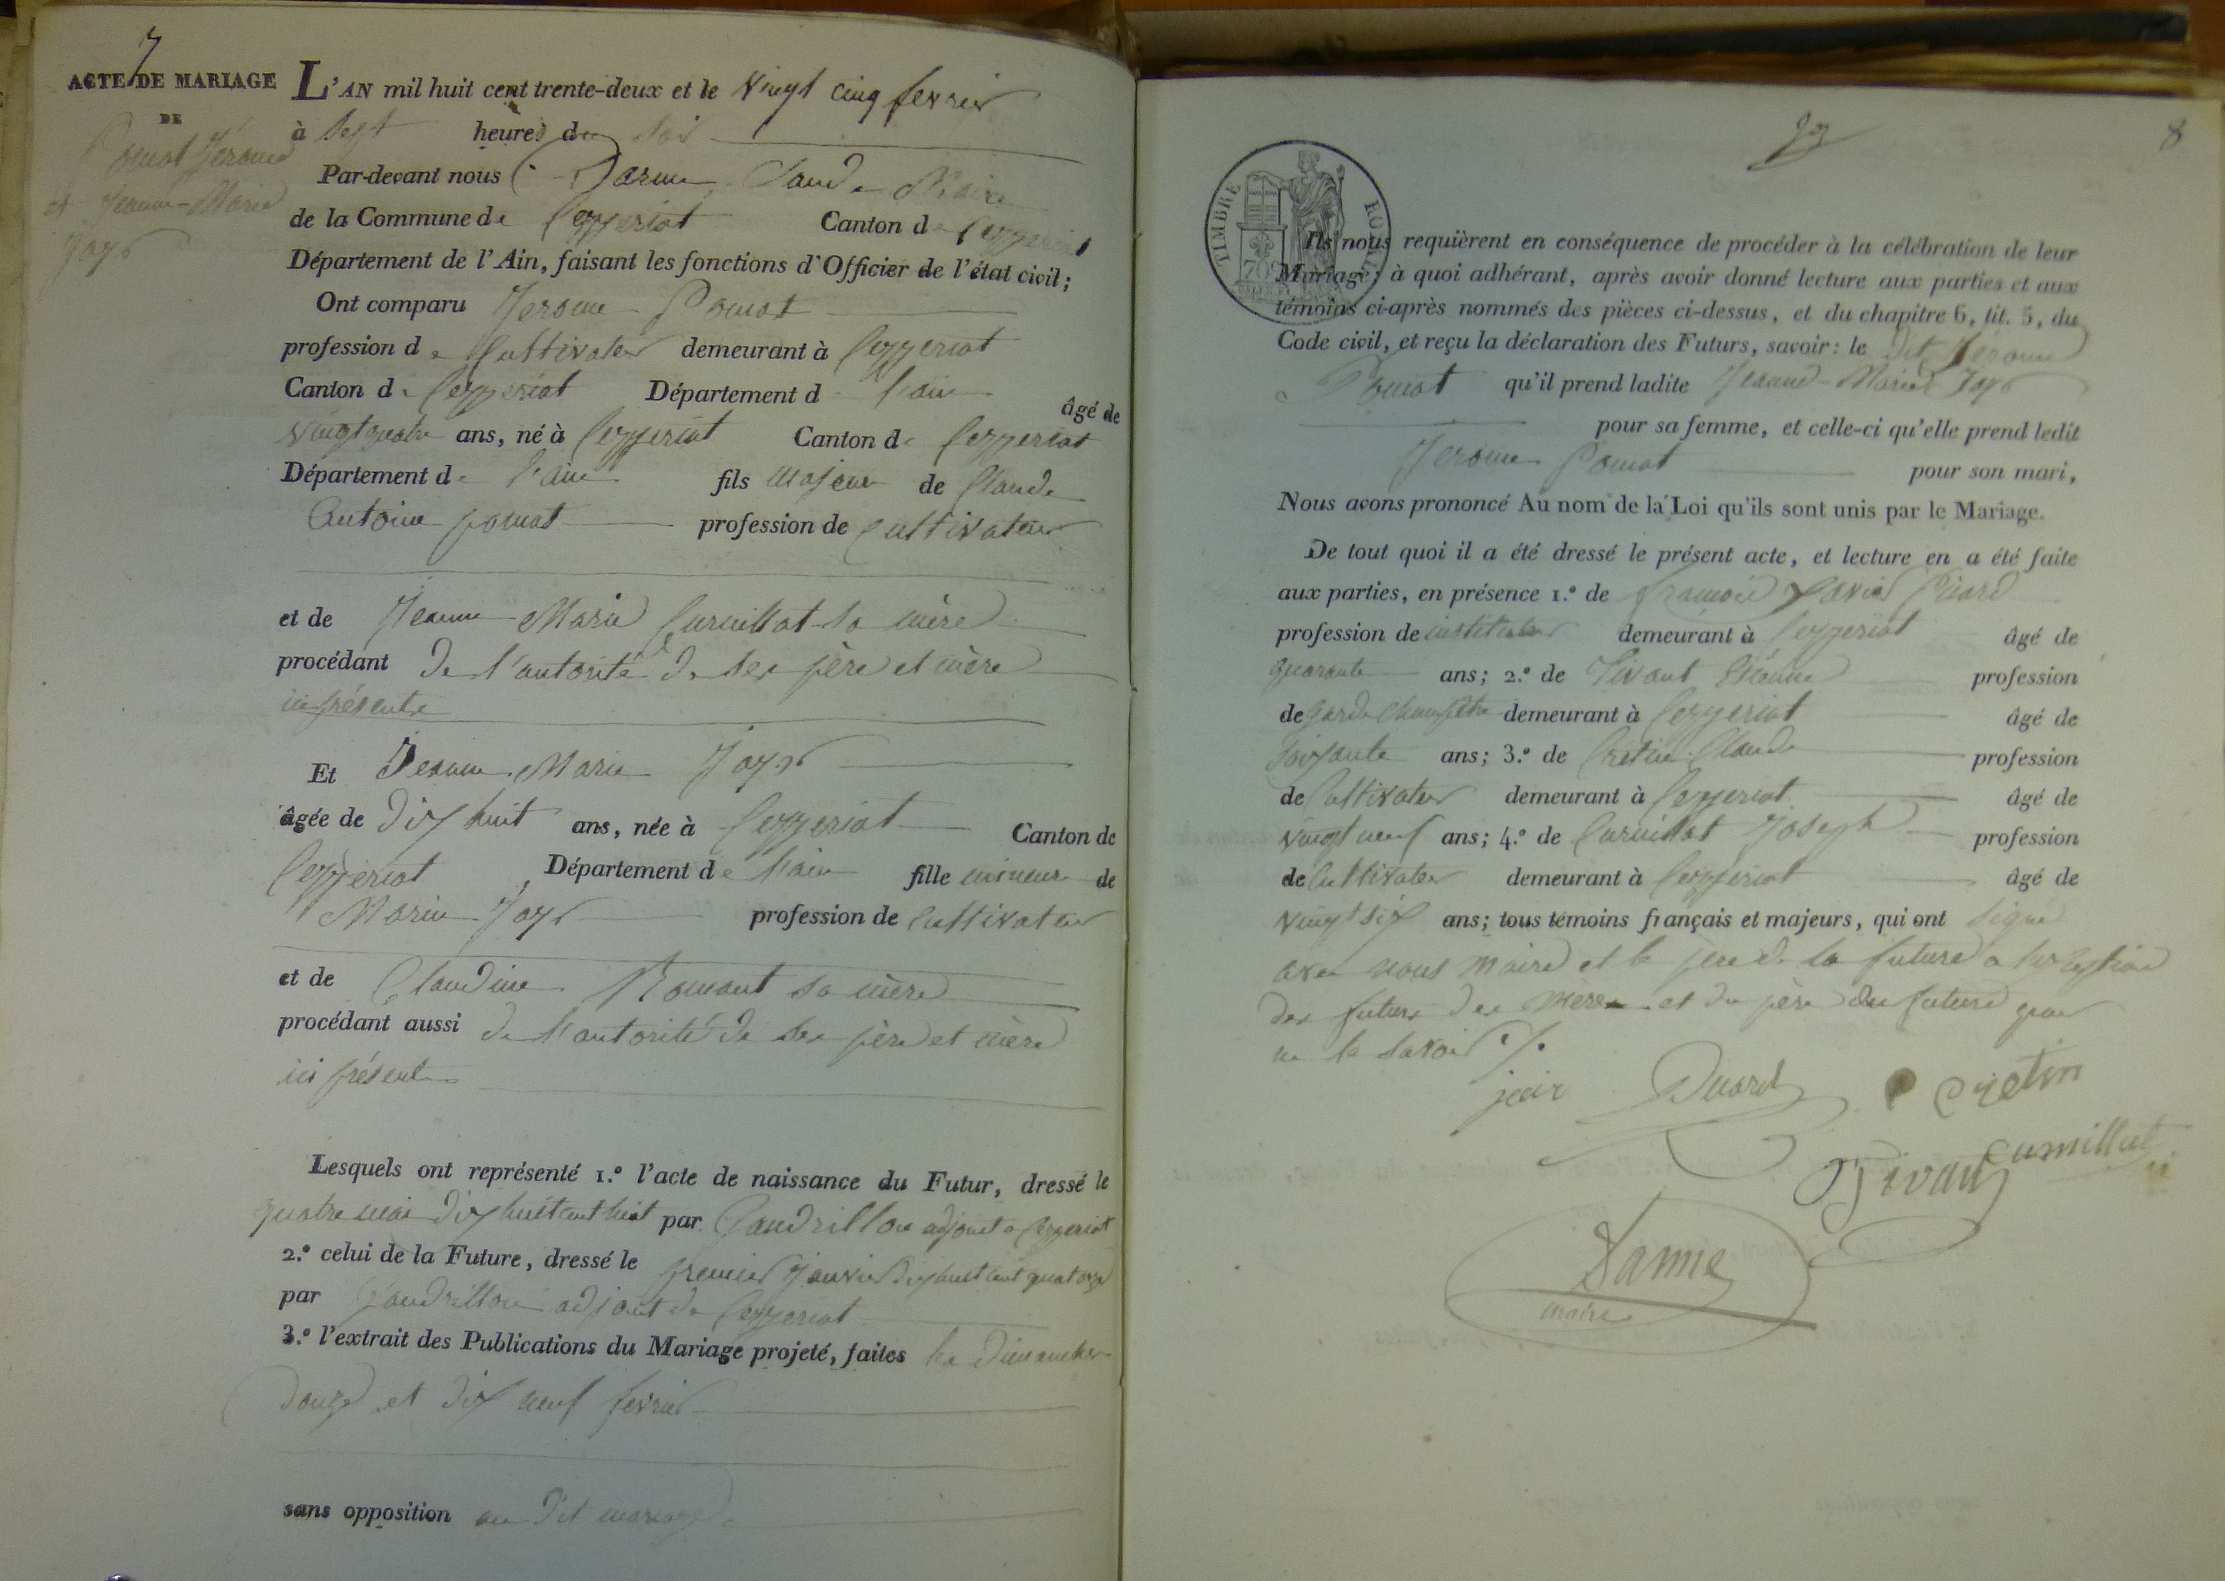 7
ACTE DE MARIAGE
DE
Pomat Jérome
et Jeanne-Marie
Jayr
L'AN mil huit cent trente-deux et le vingt cinq fevrier
à sept heures du soir
Par-devant nous Darme Claude Maire
de la Commune de Ceyzeriat Canton de Ceyzeriat
Département de l'Ain, faisant les fonctions d'Officier de l'état civil;
Ont comparu Jerome Pomat
profession de Cultivateur demeurant à Ceyzeriat
Canton de Ceyzeriat Département d l'ain âgé de
vingt quatre ans, né à Ceyzeriat Canton de Ceyzeriat
Département de l'ain fils majeur de Claude
Antoine pomat profession de Cultivateur
et de Jeanne Marie Curnillat sa mère
procédant de l'autorité de ses père et mère
ici présents
Et Jeanne Marie Jayr
âgée de dix huit ans, née à Ceyzeriat Canton de
Ceyzeriat Département de l'ain fille mineure de
Marin Jayr profession de Cultivateur
et de Claudine Romant sa mère
procédant aussi de l'autorité de ses père et mère
ici présents
Lesquels ont représenté 1.º l'acte de naissance du Futur, dressé le
quatre mai dix huit cent huit par Gaudrillon adjoint a Ceyzeriat
2.º celui de la Future, dressé le premier janvier dix huit cent quatorze
par Gaudrillon adjoint de Ceyzeriat
3.º l'extrait des Publications du Mariage projeté, faites les dimanches
douze et dix neuf fevrier
sans opposition au dit mariage
8
TIMBRE ROYAL
70c
Ils nous requièrent en conséquence de procéder à la célébration de leur
Mariage; à quoi adhérant, après avoir donné lecture aux parties et aux
témoins ci-après nommés des pièces ci-dessus, et du chapitre 6, tit. 5, du
Code civil, et reçu la déclaration des Futurs, savoir: le dit Jérome
Pomat qu'il prend ladite Jeanne-Marie Jayr
pour sa femme, et celle-ci qu'elle prend ledit
Jerome Pomat pour son mari,
Nous avons prononcé Au nom de la Loi qu'ils sont unis par le Mariage.
De tout quoi il a été dressé le présent acte, et lecture en a été faite
aux parties, en présence 1.º de françois Xavier
profession de instituteur demeurant à Ceyzeriat âgé de
quarante ans; 2.º de Vivant Etienne profession
de garde champêtre demeurant à Ceyzeriat âgé de
soixante ans; 3.º de Cretin Claude profession
de Cultivateur demeurant à Ceyzeriat âgé de
vingt neuf ans; 4.º de Curnillat Joseph profession
de Cultivateur demeurant à Ceyzeriat âgé de
vingt six ans; tous témoins français et majeurs, qui ont signé
avec nous maire et le père de la future a l'exception
des futurs des mères et du père du future pour
ne le savoir
Cretin
Vivant Curnillat
Darme
maire